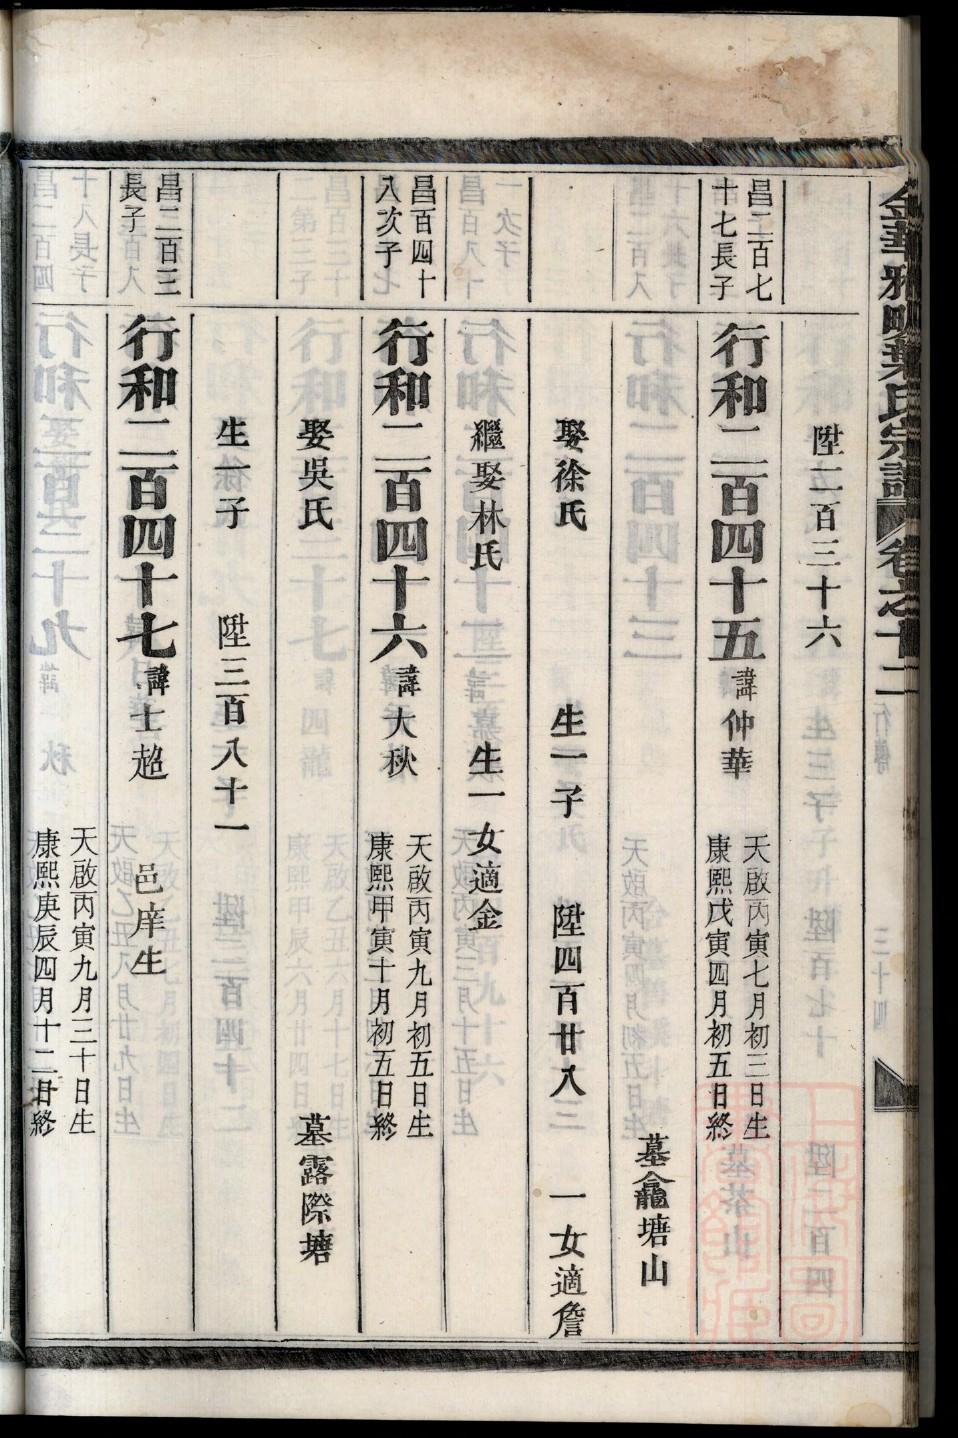 金華雅畈葉氏宗譜 卷之十二
陞二百三十六
昌二百七十七長子
行和二百四十五 諱仲華 天啟丙寅七月初三日生
康熙戊寅四月初五日終
墓龕塘山
娶徐氏 生一子 陞四百廿八 一女適詹
繼娶林氏 生一女適金
昌百四十八次子
行和二百四十六 諱大秋 天啟丙寅九月初五日生
康熙甲寅十月初五日終
墓露際塘
娶吳氏
生一子 陞三百八十一
昌二百三長子
行和二百四十七 諱士超 邑庠生
天啟丙寅九月三十日生
康熙庚辰四月十二日終